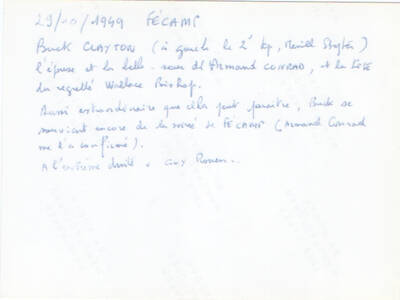 29/10/1949 FÉCAMP
Buck CLAYTON (à gauche le 2° tp, Merrill Stepter)
l'épouse et la belle-soeur d'Armand CONRAD, et la tête
du regretté Wallace Bishop.
Aussi extraordinaire que cela peut paraître, Buck se
souvient encore de la soirée de FÉCAMP (Armand Conrad
me l'a confirmé).
A l'extrême droite Guy